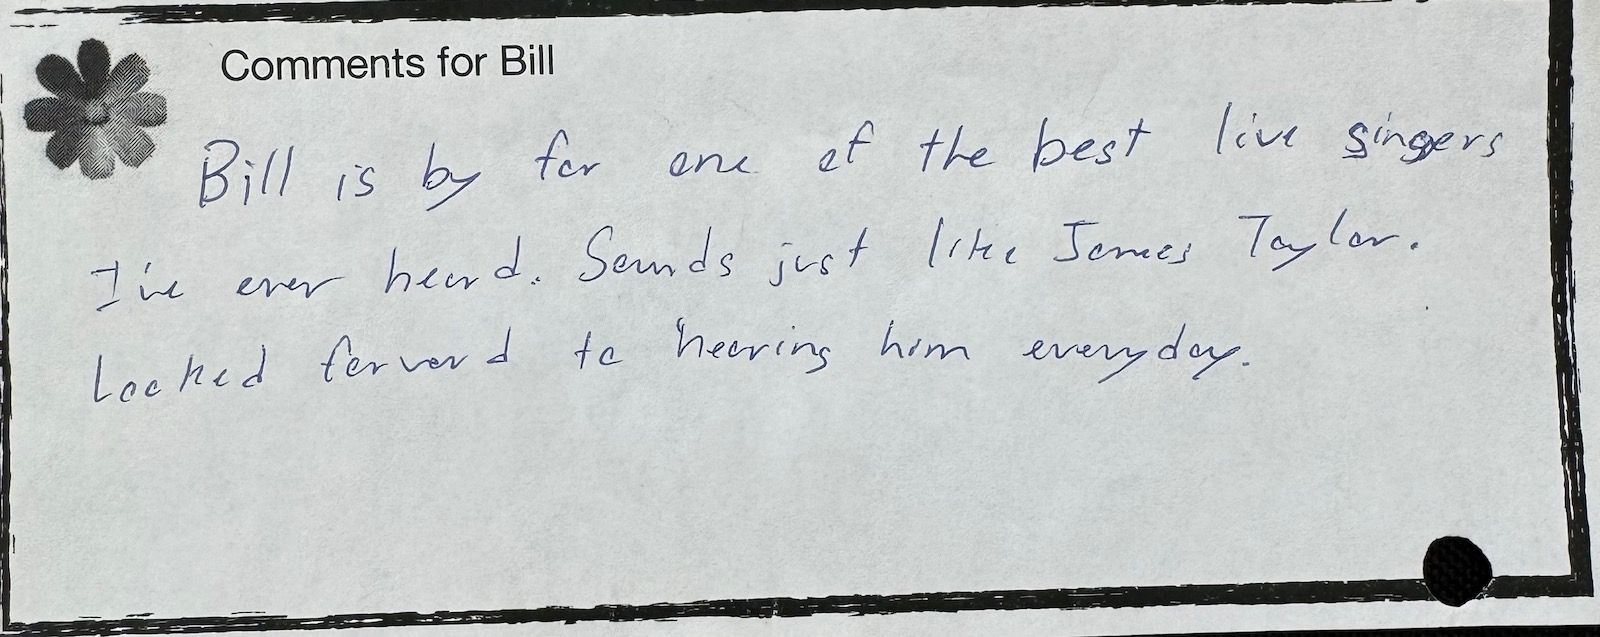 Comments for Bill
Bill is by far one of the best live singers
I've ever heard. Sounds just like James Taylor.
Looked forward to hearing him everyday.